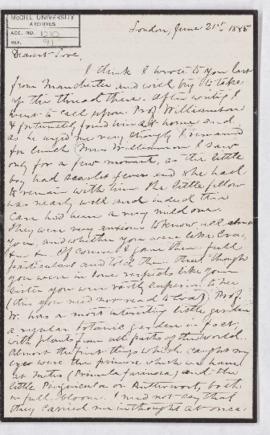 McGILL UNIVERSITY
ARCHIVES
ACC. NO. 1210
REF. 91
London, June 21st 1885
Dearest Eva,
I think I wrote to you last
from Manchester and will try to take
up the thread there. After writing I
went to call upon Prof. Williamson
& fortunately found him at home and
as he urged me very strongly I remained
for lunch. Mrs Williamson I saw
only for a few moments, as the little
boy had scarlet fever and she had
to remain with him. The little fellow
was nearly well and indeed the
case had been a very mild one.
They were very anxious to know all about
you, and whether you were like Eva,
&c &c. Of course I gave them full
particulars and told them that though
you were in some respects like your
sister you were vastly superior to her
(this you need not read to Eva). Prof.
W. has a most interesting little garden
a regular botanic garden in fact,
with plants from all parts of the world.
Almost the first things which caught my
eyes were the primrose which we have
at Métis (Primula farinosa) and the
little Pinguicula or Butterwort, both
in full bloom. I need not say that
they carried me in thought at once